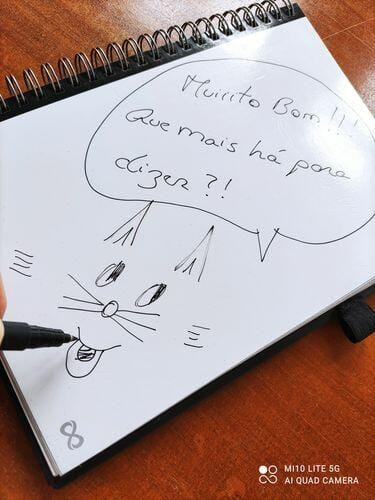 Muiiito Bom!!!
Que mais há para
dizer?!
8
MI 10 LITE 5G
AI QUAD CAMERA